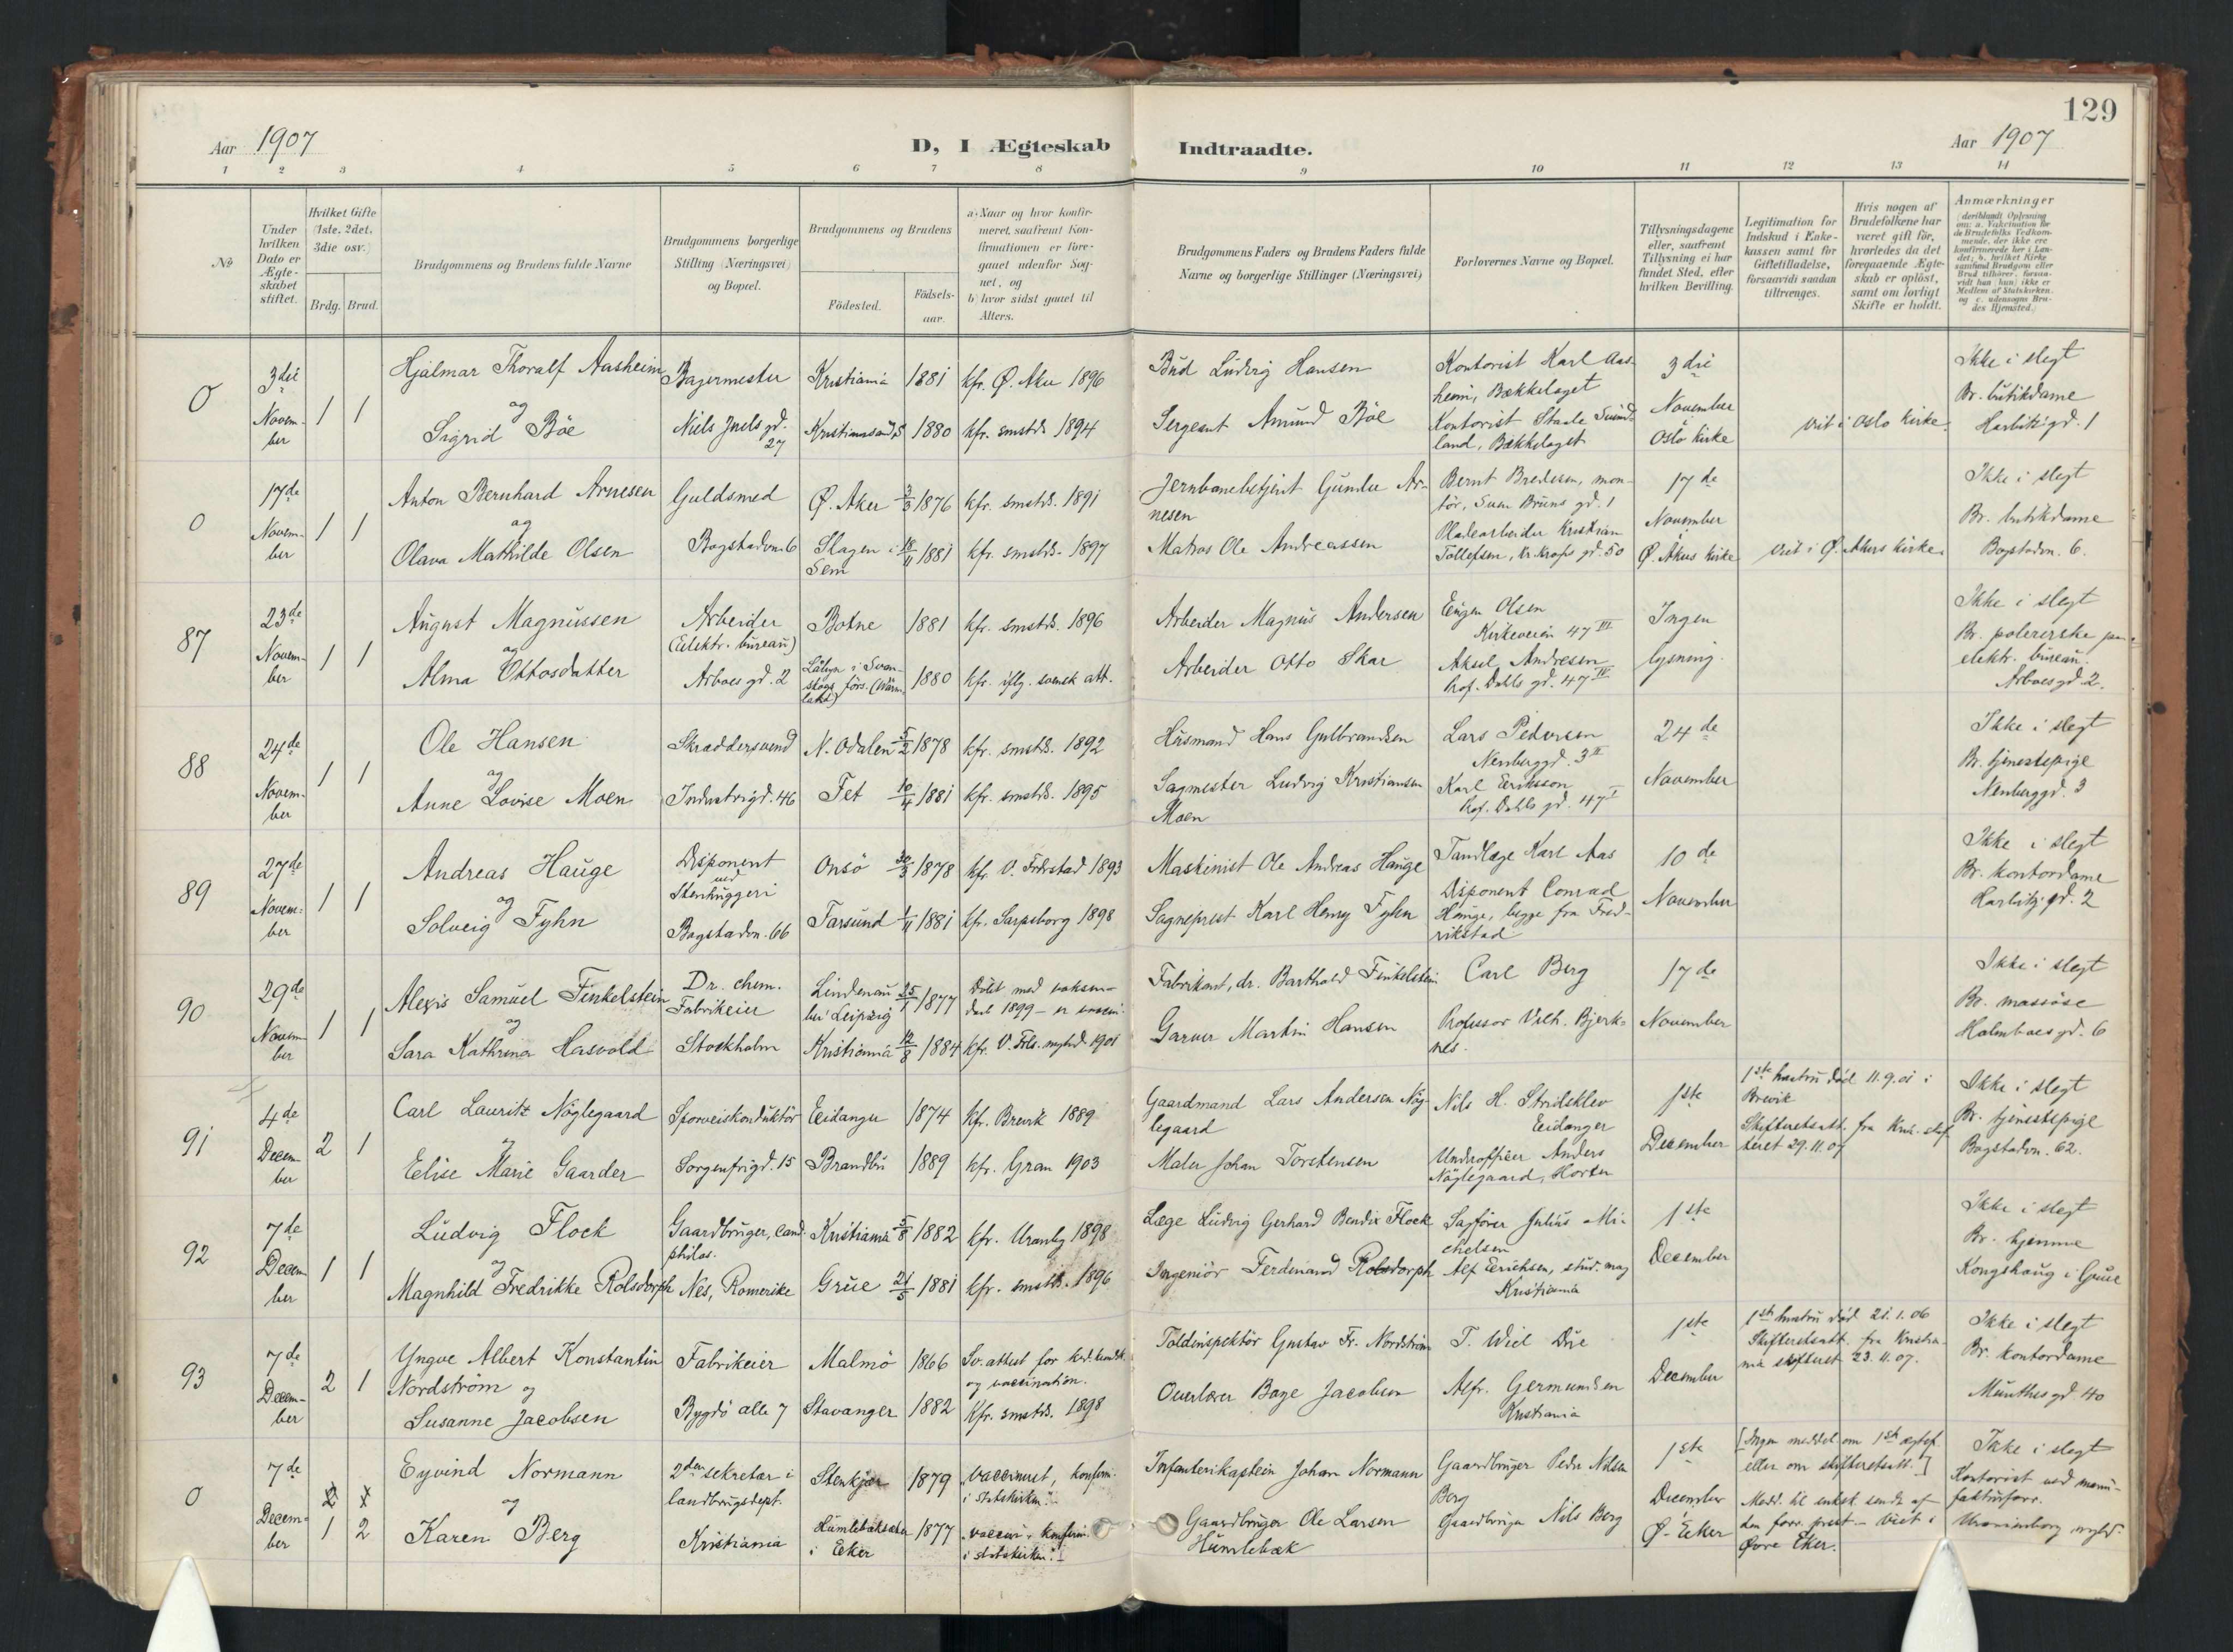 129
Aar 1907
D, I Ægteskab Indtraadte.
Aar 1907
1 2 3 4 5 6 7 8 9 10 11 12 13 14
№
Under hvilken Dato er Ægteskabet stiftet.
Hvilket Gifte (1ste, 2det, 3die osv.)
Brdg. Brud.
Brudgommens og Brudens fulde Navne
Brudgommens borgerlige Stilling (Næringsvei) og Bopæl.
Brudgommens og Brudens
Fødested.
Födsels-aar.
a) Naar og hvor konfirmeret, saafremt Konfirmationen er foregaaet udenfor Sognet, og
b) hvor sidst gaaet til Alters.
Brudgommens Faders og Brudens Faders fulde Navne og borgerlige Stillinger (Næringsvei)
Forlovernes Navne og Bopæl.
Tillysningsdagene eller, saafremt Tillysning ei har fundet Sted, efter hvilken Bevilling.
Legitimation for Indskud i Enkekassen samt for Giftetilladelse, forsaavidt saadan tiltrænges.
Hvis nogen af Brudefolkene har været gift før, hvorledes da det foregaaende Ægteskab er opløst, samt om lovligt Skifte er holdt.
Anmærkninger (deriblandt Oplysning om: a. Vakcination for de Brudefolks Vedkommende, der ikke ere konfirmerede her i Landet; b. hvilket Kirkesamfund Brudgom eller Brud tilhører, forsaavidt han (hun) ikke er Medlem af Statskirken, og c. udensogns Brudes Hjemsted.)
0
3die November
1 1
Hjalmar Thoralf Aasheim
og
Sigrid Böe
Bagermester
Niels Juels gd. 27
Kristiania 1881 kfr. Ø. Aker 1896
Kristianssand S 1880 kfr. smstds. 1894
Bud Ludvig Hansen
Sergeant Amund Böe
Kontorist Karl Aasheim, Bækkelaget
Kontorist Staale Svindland, Bækkelaget
3die November
Oslo kirke
viet i Oslo kirke.
Ikke i slegt
Br. butikdame
Harbitz gd. 1
0
17de November
1 1
Anton Bernhard Arnesen
og
Olava Mathilde Olsen
Guldsmed
Bogstadvn. 6
Ø. Aker 3/3 1876 kfr. smstds. 1891
Slagen i Sem 18/11 1881 kfr. smstds. 1897
Jernbanebetjent Gunder Arnesen
Matros Ole Andreassen
Bernt Bredesen, montör, Sven Bruns gd. 1
Pladearbeider Kristian Tollefsen, Kr. Krafts gd. 50
17de November
Ø. Akers kirke
viet i Ø. Akers kirke.
Ikke i slegt
Br. butikdame
Bogstadvn. 6.
87
23de November
1 1
August Magnussen
og
Alma Ottosdatter
Arbeider
(Elektr. bureau)
Arboes gd. 2
Botne 1881 kfr. smstds. 1896
1880 kfr. iflg. svensk att.
Arbeider Magnus Andersen
Arbeider Otto Skar
Eugen Olsen
Kirkeveien 47 III
Aksel Andresen
Prof. Dahls gd. 47 IV
Ingen lysning.
Ikke i slegt
Br. polererske paa elektr. bureau.
Arboes gd. 2.
88
24de November
1 1
Ole Hansen
og
Anne Lovise Moen
Skræddersvend
Industrigd. 46
N. Odalen 5/2 1878 kfr. smstds. 1892
Fet 10/4 1881 kfr. smstds. 1895
Husmand Hans Gulbrandsen
Sagmester Ludvig Kristiansen Moen
Lars Pedersen
Nenberggd. 3 II
Karl Eriksson
Prof. Dahls gd. 47 I
24de November
Ikke i slegt
Br. tjenestepige
Nenberggd. 3
89
27de November
1 1
Andreas Hauge
og
Solveig Fyhn
Disponent ved Stenhuggeri
Bogstadvn. 66
Onsö 30/3 1878 kfr. V. Fredrstad 1893
Farsund 1/11 1881 kfr. Sarpsborg 1898
Maskinist Ole Andreas Hauge
Sogneprest Karl Henry Fyhn
Tandlæge Karl Aas
Disponent Conrad Hauge, begge fra Fredrikstad
10de November
Ikke i slegt
Br. kontordame
Harbitz gd. 2
90
29de November
1 1
Alexis Samuel Finkelstein
og
Sara Kathrina Hasvold
Dr. chem. Fabrikeier
Stockholm
Lindenau bei Leipzig 25/1 1877
Kristiania 12/8 1884 kfr. V. Frls. myhd. 1901
Døbt med voksendaab 1899 – er vaccin.
Fabrikant, dr. Barthold Finkelstein
Garver Martin Hansen
Carl Berg
Professor Vilh. Bjerknes.
17de November
Ikke i slegt
Br. massöse
Holmboes gd. 6
91
4de December
2 1
Carl Lauritz Nöglegaard
og
Elise Marie Gaarder
Sporveiskonduktör
Sorgenfrigd. 15
Eidanger 1874 kfr. Brevik 1889
Brandbu 1889 kfr. Gran 1903
Gaardmand Lars Andersen Nöglegaard
Maler Johan Torstensen
Nils H. Stridsklev
Eidanger
Underofficer Anders Nöglegaard, Horten
1ste December
1ste hustru död 11.9.01 i Brevik
Skifteretsatt. fra Kra. skifteret 29.11.07
Ikke i slegt
Br. tjenestepige
Bogstadvn. 62.
92
7de December
1 1
Ludvig Flock
og
Magnhild Fredrikke Rolsdorph
Gaardbruger, cand. philos.
Nes, Romerike
Kristiania 5/8 1882 kfr. Uranbg 1898
Grue 21/5 1881 kfr. smstds. 1896
Læge Ludvig Gerhard Bendix Flock
Ingeniör Ferdinand Rolsdorph
Sagförer Julius Michelsen
Alf Erichsen, stud. mag
Kristiania
1ste December
Ikke i slegt
Br. hjemme
Kongshaug i Grue
93
7de December
2 1
Yngve Albert Konstantin Nordström og
Susanne Jacobsen
Fabrikeier
Bygdö alle 7
Malmö 1866 Sv. attest for krd.kundsk. og vaccination.
Stavanger 1882 kfr. smstds. 1898
Toldinspektör Gustav Fr. Nordström
Overlærer Bage Jacobsen
T. Wiel Due
Alfr. Germundsen
Kristiania
1ste December
1ste hustru död 21.1.06
Skifteretsatt. fra Kristiania skifteret 23.11.07.
Ikke i slegt
Br. kontordame
Munthes gd. 40
0
7de December
2 1
1 2
Eyvind Normann
og
Karen Berg
2den sekretær i landbrugsdept.
Kristiania
Stenkjær 1879 "vaccineret, konfirm. i statskirken".
Humlebæksæter i Eker 1877 "vaccin. konfirm. i statskirken".
Infanterikaptein Johan Normann
Gaardbruger Ole Larsen Humlebæk
Gaardbruger Peder Nilsen Berg
Gaardbruger Nils Berg
1ste December
Ø. Eker
[Ingen meddel. om 1ste ægtesk. eller om skifteretsatt.]
Medd. til enkek. sendt af den forr. prest – viet i Øvre Eker.
Ikke i slegt
Kontorist ved manufakturforr.
Uranienborg myhd.